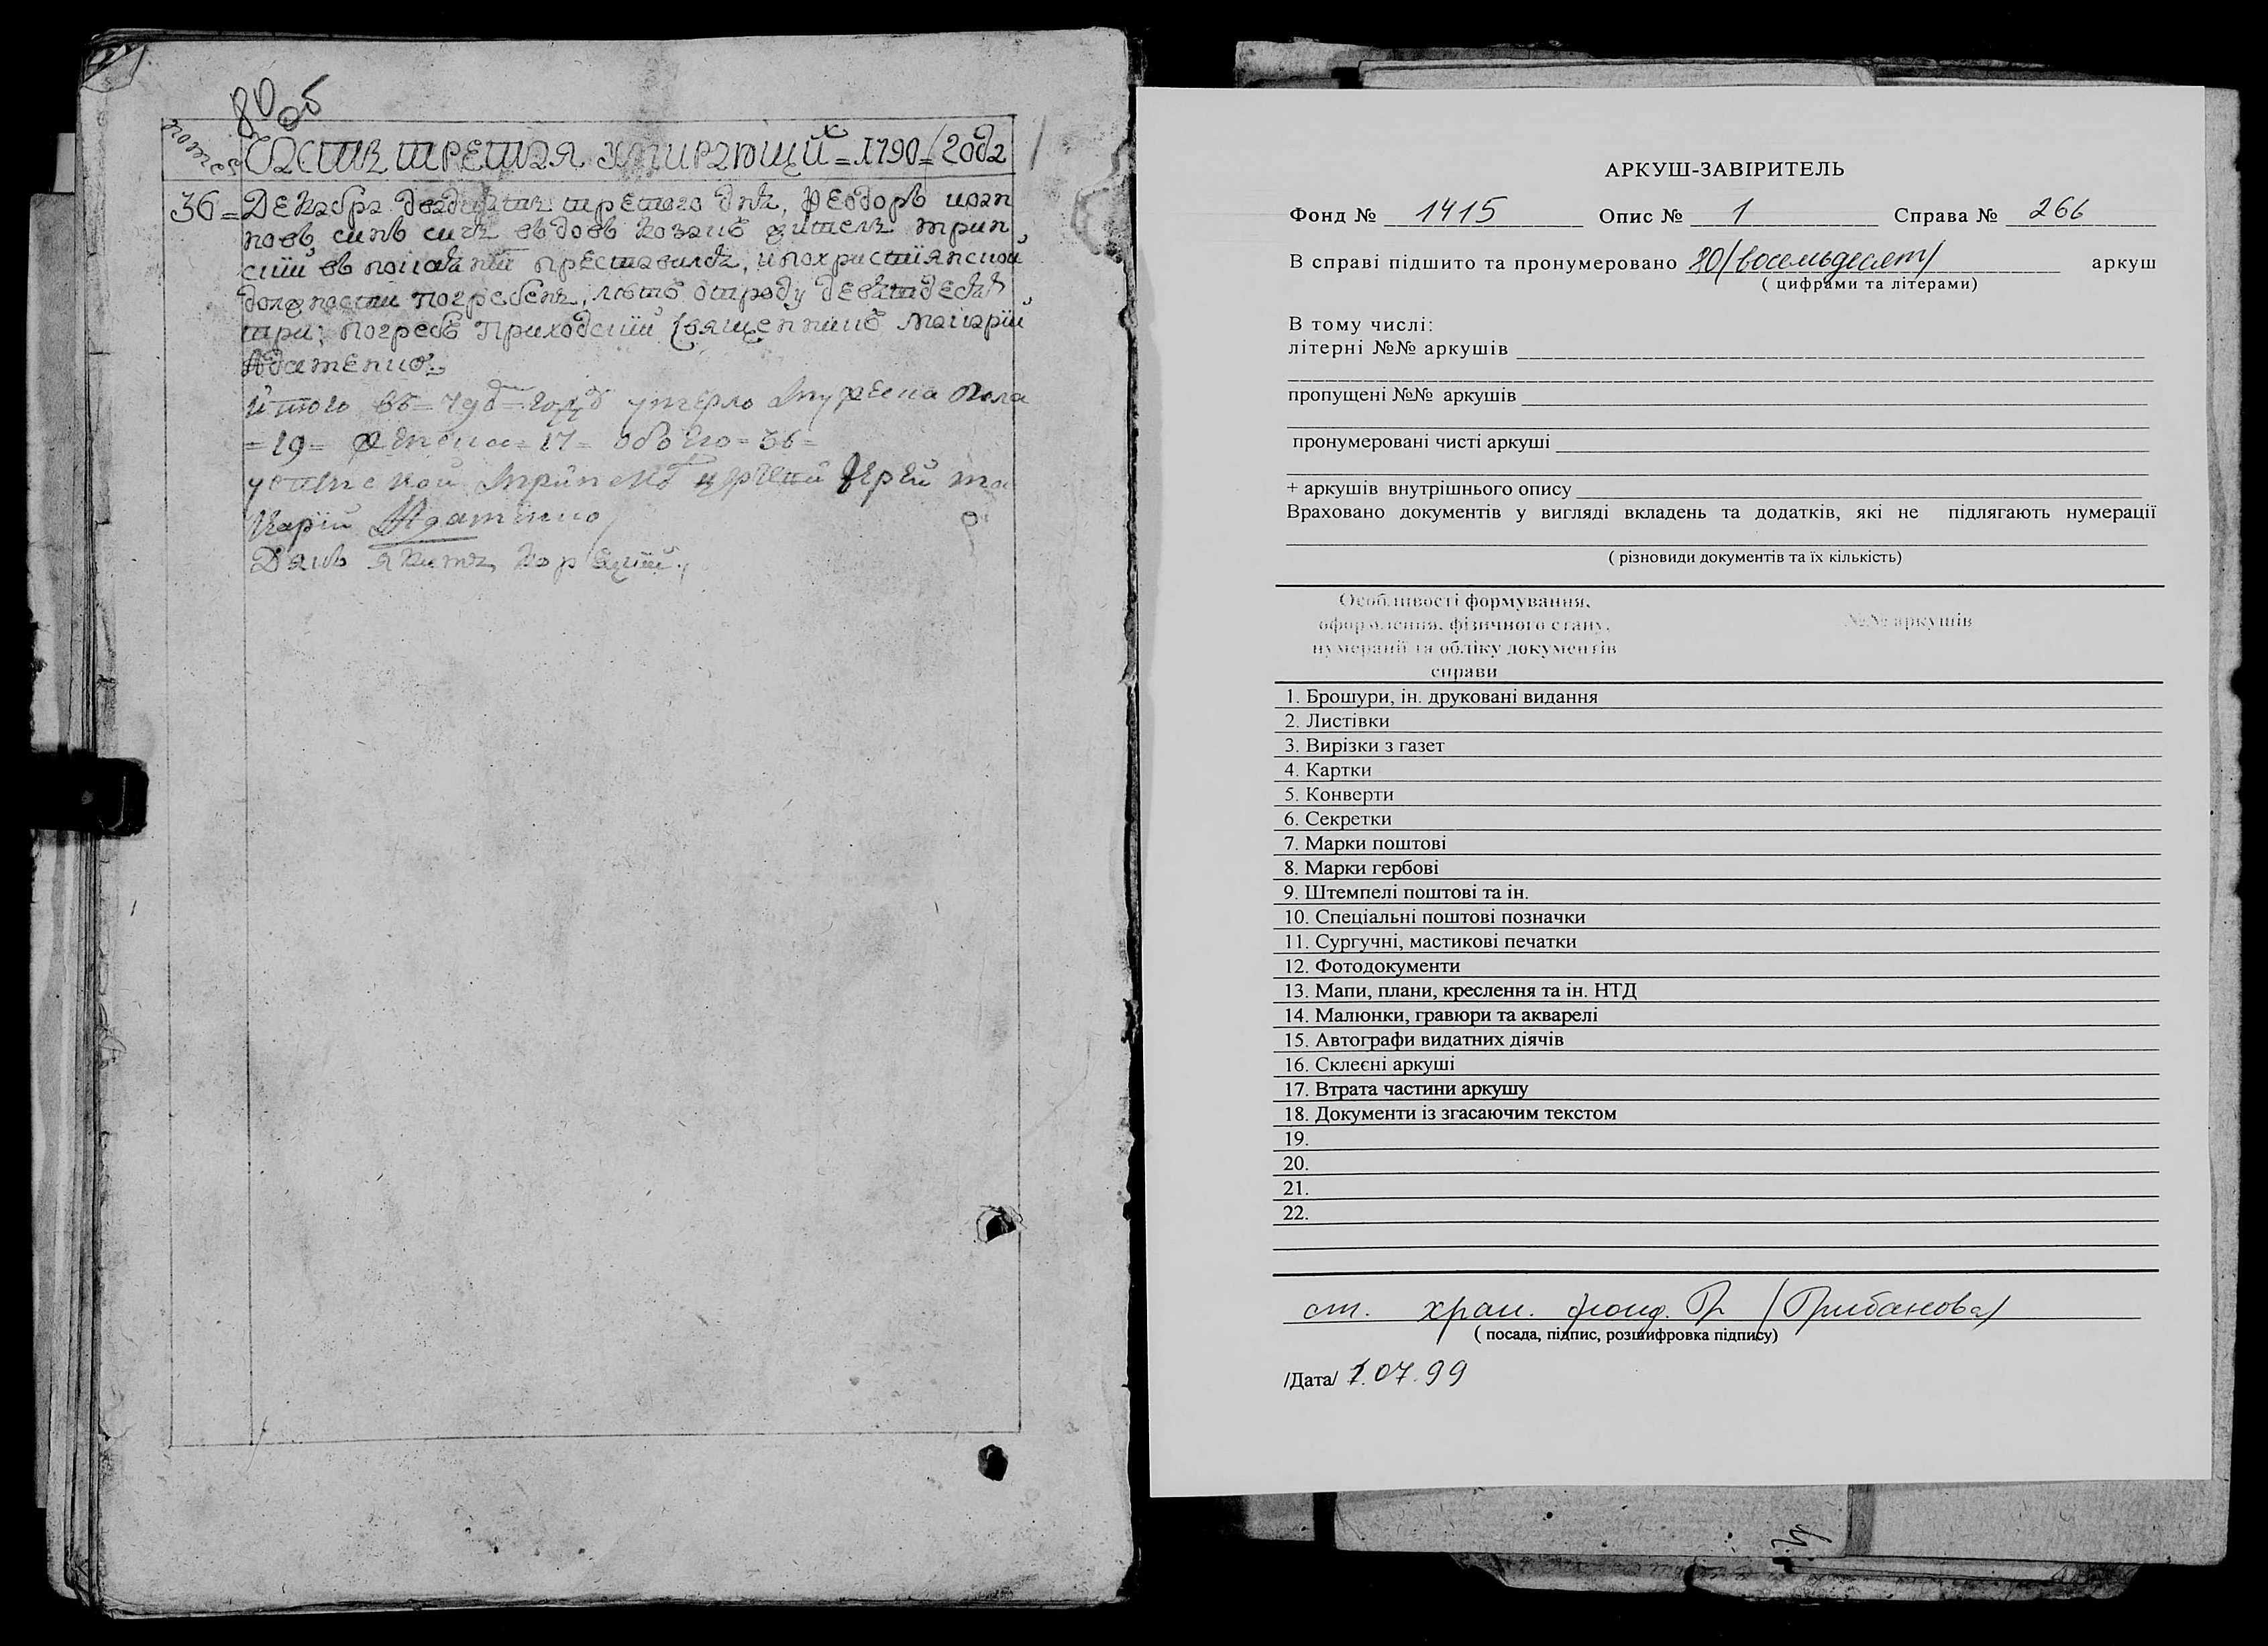 80 об
ЧАСТЬ ТРЕТАЯ УМИРАЮЩИХ = 1790 = Года
36 = Декабра двадцать третого дня, Феодоръ иоан
новъ синъ
в покаянии преставился, и по християнской
должности погребенъ, лѣтъ отроду девятдесят
три; погребъ Приходский Священникъ Макарий
Адаменко
Итого въ = 790 = году умерло мужеска пола
= 19 = женска = 17 = обоего = 36 =
церкви Иерей Ма
карий Адаменко
Дякъ Яким
АРКУШ-ЗАВІРИТЕЛЬ
Фонд № 1415 Опис № 1 Справа № 266
В справі підшито та пронумеровано 80/восемьдесят/ аркуш
( цифрами та літерами)
В тому числі:
літерні №№ аркушів
пропущені №№ аркушів
пронумеровані чисті аркуші
+ аркушів внутрішнього опису
Враховано документів у вигляді вкладень та додатків, які не підлягають нумерації
( різновиди документів та їх кількість)
Особливості формування, оформлення, фізичного стану, нумерації та обліку документів справи
№№ аркушів
1. Брошури, ін. друковані видання
2. Листівки
3. Вирізки з газет
4. Картки
5. Конверти
6. Секретки
7. Марки поштові
8. Марки гербові
9. Штемпелі поштові та ін.
10. Спеціальні поштові позначки
11. Сургучні, мастикові печатки
12. Фотодокументи
13. Мапи, плани, креслення та ін. НТД
14. Малюнки, гравюри та акварелі
15. Автографи видатних діячів
16. Склеєні аркуші
17. Втрата частини аркушу
18. Документи із згасаючим текстом
19.
20.
21.
22.
ст. хран. фонд. Гр /Грибанова/
( посада, підпис, розшифровка підпису)
/Дата/ 1.07.99